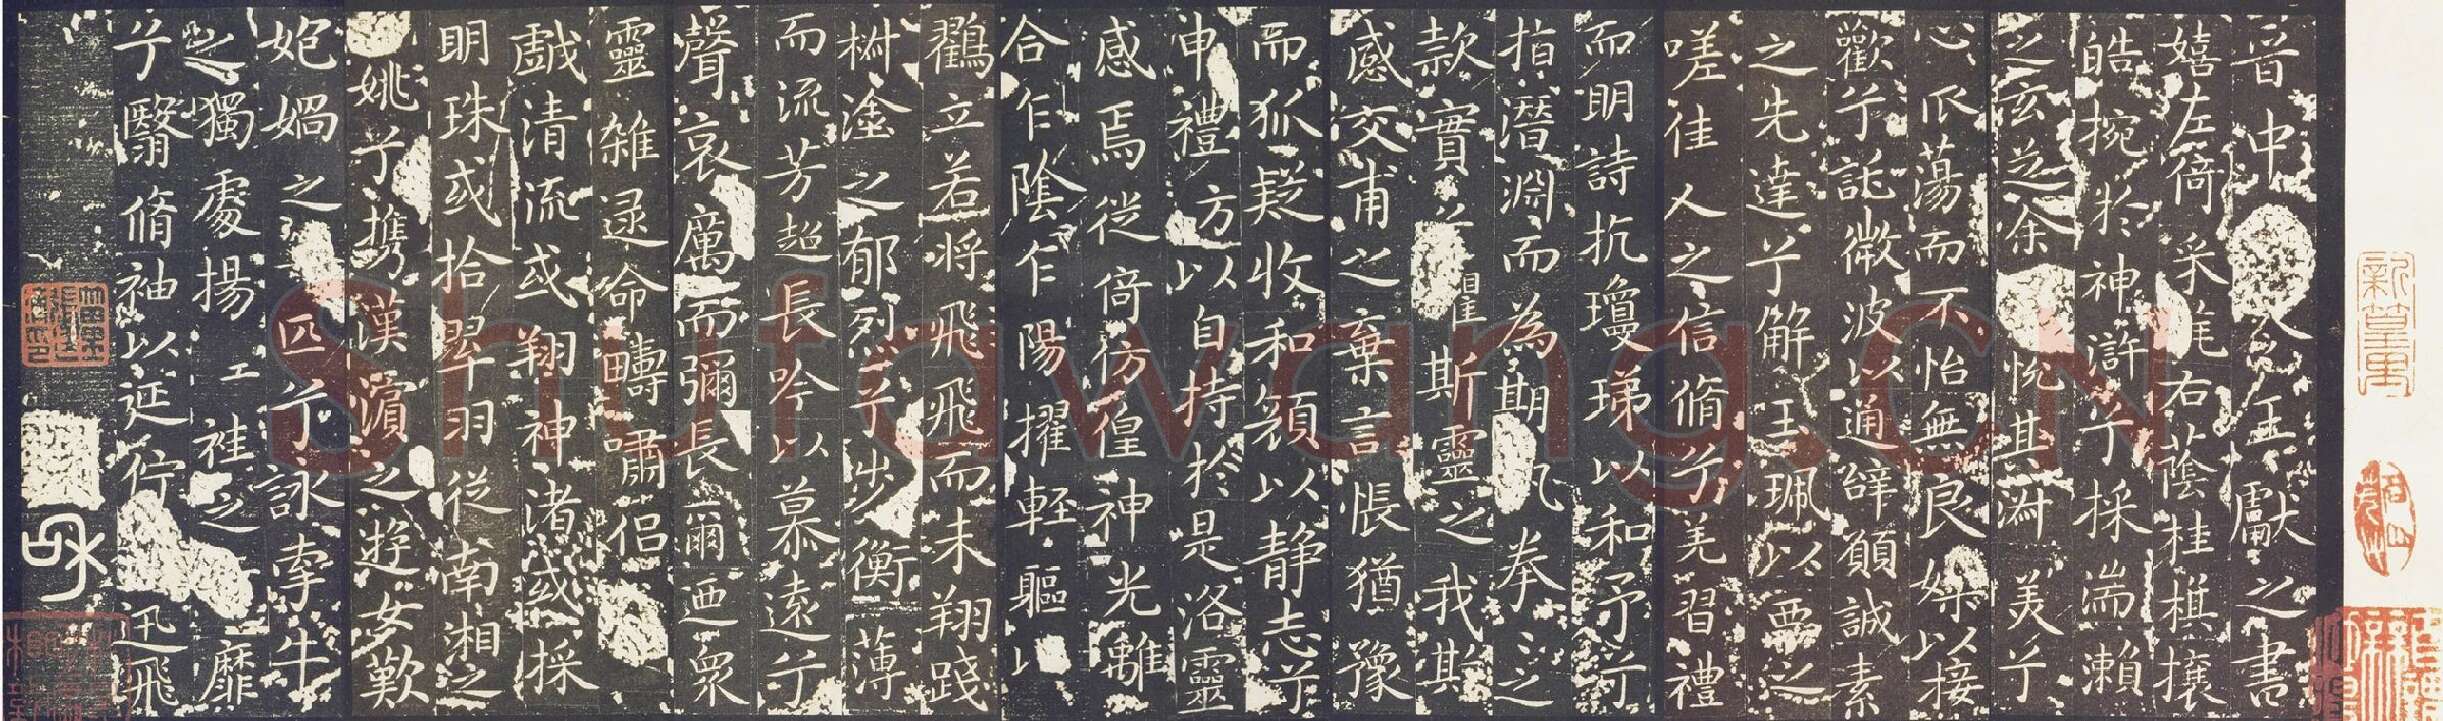 晉中令王獻之書
嬉左倚采旄右蔭桂旗攘
皓捥於神滸兮採湍瀨
之玄芝余悅其淑美兮
心震蕩而不怡無良媒以接
歡兮託微波以通辭願誠素
之先達兮解玉珮以要之
嗟佳人之信脩兮羌習禮
而明詩抗瓊珶以和予兮
指潛淵而為期執拳〻之
款實兮懼斯靈之我欺
感交甫之棄言悵猶豫
而狐疑收和顏以静志兮
申禮方以自持於是洛靈
感焉徙倚彷徨神光離
合乍陰乍陽擢輕軀以
鸛立若將飛飛而未翔踐
椒塗之郁烈兮步衡薄
而流芳超長吟以慕遠兮
聲哀厲而彌長爾迺眾
靈雜遝命疇嘯侶
戲清流或翔神渚或採
明珠或拾翠羽從南湘之
姚兮攜漢濱之遊女歎
匏媧之匹兮詠牽牛
之獨處揚袿之靡
兮翳脩袖以延佇迅飛
Shufawang.CN